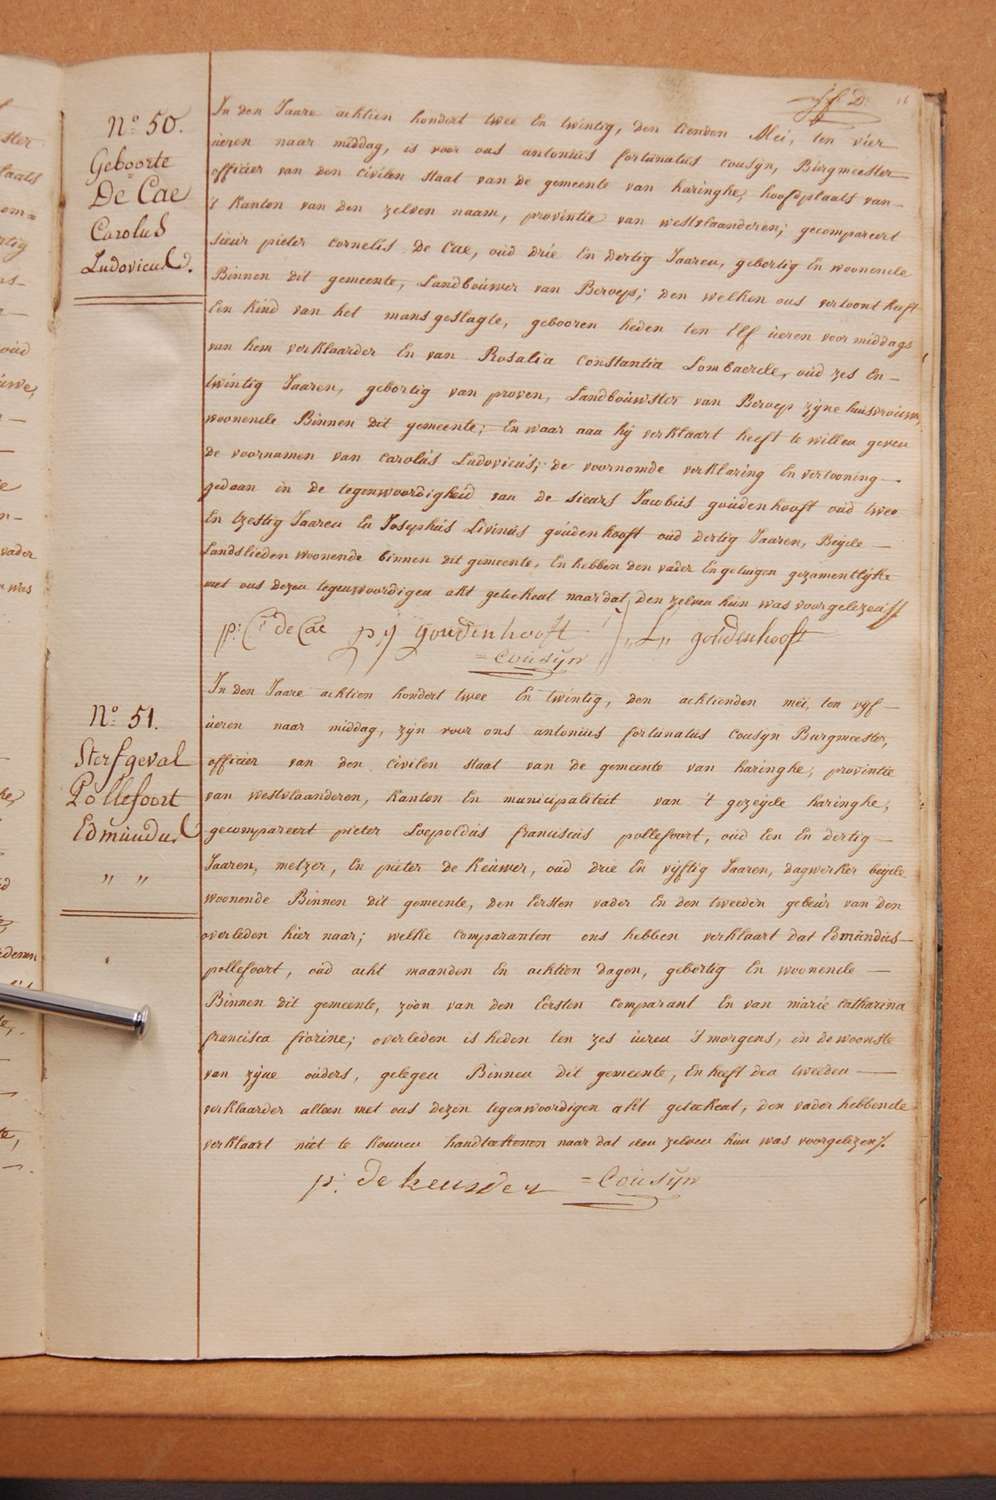 16
N° 50.
Geboorte
De Cae
Carolus
Ludovicus.
In den Jaare achtien hondert twee en twintig, den tienden Mei, ten vier
ueren naar middag, is voor ons antonius fortunatus Cousyn, Burgmeester
officier van den civilen staat van de gemeente van haringhe, hoofdplaats van
't Kanton van den zelven naam, provintie van westvlaanderen; gecompareert
sieur pieter cornelis De Cae, oud drie en dertig Jaaren, gebortig en woonende
Binnen dit gemeente, Landbouwer van Beroep; den welken ons vertoont heeft
een kind van het mansgeslagte, gebooren heden ten Elf ueren voor middags
van hem verklaarder en van Rosalia Constantia Lombaerde, oud zes en
twintig Jaaren, gebortig van proven, Landbouwster van Beroep zyne huisvrouwe,
woonende Binnen dit gemeente; en waar aan hy verklaart heeft te willen geven
de voornamen van Carolus Ludovicus; de voornomde verklaring en vertooning
gedaan in de tegenwoordigheid van de sieurs Jacobus goudenhooft oud twee
en tzestig Jaaren en Josephus Livinus goudenhooft oud dertig Jaaren, Beyde
Landslieden woonende binnen dit gemeente, en hebben den vader en getuigen gezamentlyke
met ons dezen tegenwoordigen akt geteekent naar dat den zelven hun was voorgelezen
p: C: de Cae p j goudenhooft L goudenhooft
= Cousyn
N° 51.
Sterfgeval
Pollefoort
Edmundus
" "
In den Jaare achtien hondert twee en twintig, den achtienden mei, ten vyf
ueren naar middag, zyn voor ons antonius fortunatus Cousyn Burgmeester,
officier van den civilen staat van de gemeente van haringhe, provintie
van westvlaanderen, Kanton en municipaliteit van 't gezeyde haringhe,
gecompareert pieter Loepoldus franciscus pollefoort, oud een en dertig
Jaaren, metzer, en pieter de Keuwer, oud drie en vyftig Jaaren, dagwerker beyde
woonende Binnen dit gemeente, den eersten vader en den tweeden gebeur van den
overleden hier naar; welke comparanten ons hebben verklaart dat Edmundus
pollefoort, oud acht maanden en achtien dagen, gebortig en woonende
Binnen dit gemeente, zoon van den eersten comparant en van marie catharina
francisca fiorine; overleden is heden ten zes ueren 's morgens, in de woonste
van zyne ouders, gelegen Binnen dit gemeente, en heeft den tweeden
verklaarder alleen met ons dezen tegenwoordigen akt geteekent, den vader hebbende
verklaart niet te konnen handteekenen naar dat den zelven hun was voorgelezen
p: de keuwer = Cousyn